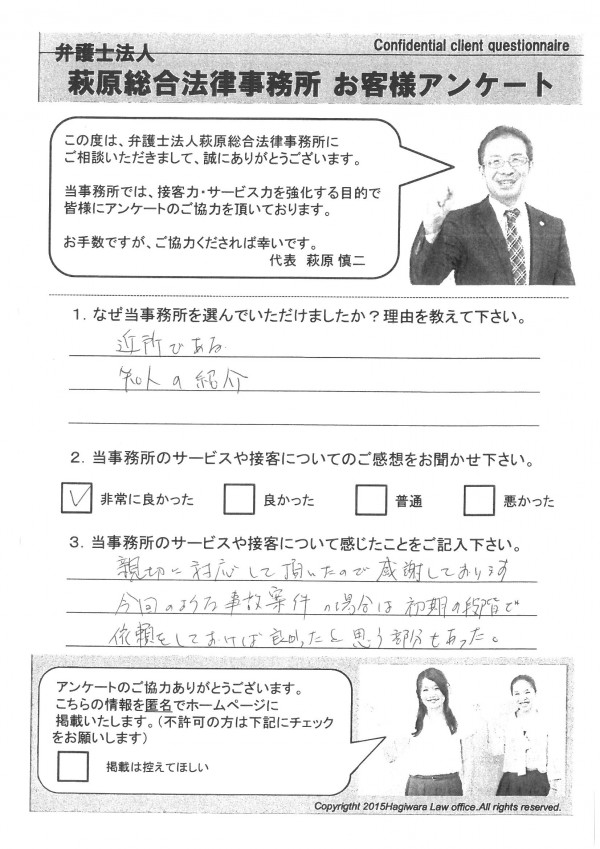 Confidential client questionnaire
弁護士法人
萩原総合法律事務所 お客様アンケート
この度は、弁護士法人萩原総合法律事務所に
ご相談いただきまして、誠にありがとうございます。
当事務所では、接客力・サービス力を強化する目的で
皆様にアンケートのご協力を頂いております。
お手数ですが、ご協力くだされば幸いです。
代表 萩原 慎二
1. なぜ当事務所を選んでいただけましたか？理由を教えて下さい。
近所である
知人の紹介
2. 当事務所のサービスや接客についてのご感想をお聞かせ下さい。
非常に良かった 良かった 普通 悪かった
3. 当事務所のサービスや接客について感じたことをご記入下さい。
親切に対応して頂いたので感謝しております
今回のような事故案件の場合は初期の段階で
依頼をしておけば良かったと思う部分もあった。
アンケートのご協力ありがとうございます。
こちらの情報を匿名でホームページに
掲載いたします。（不許可の方は下記にチェック
をお願いします）
掲載は控えてほしい
Copyrightt 2015Hagiwara Law office.All rights reserved.